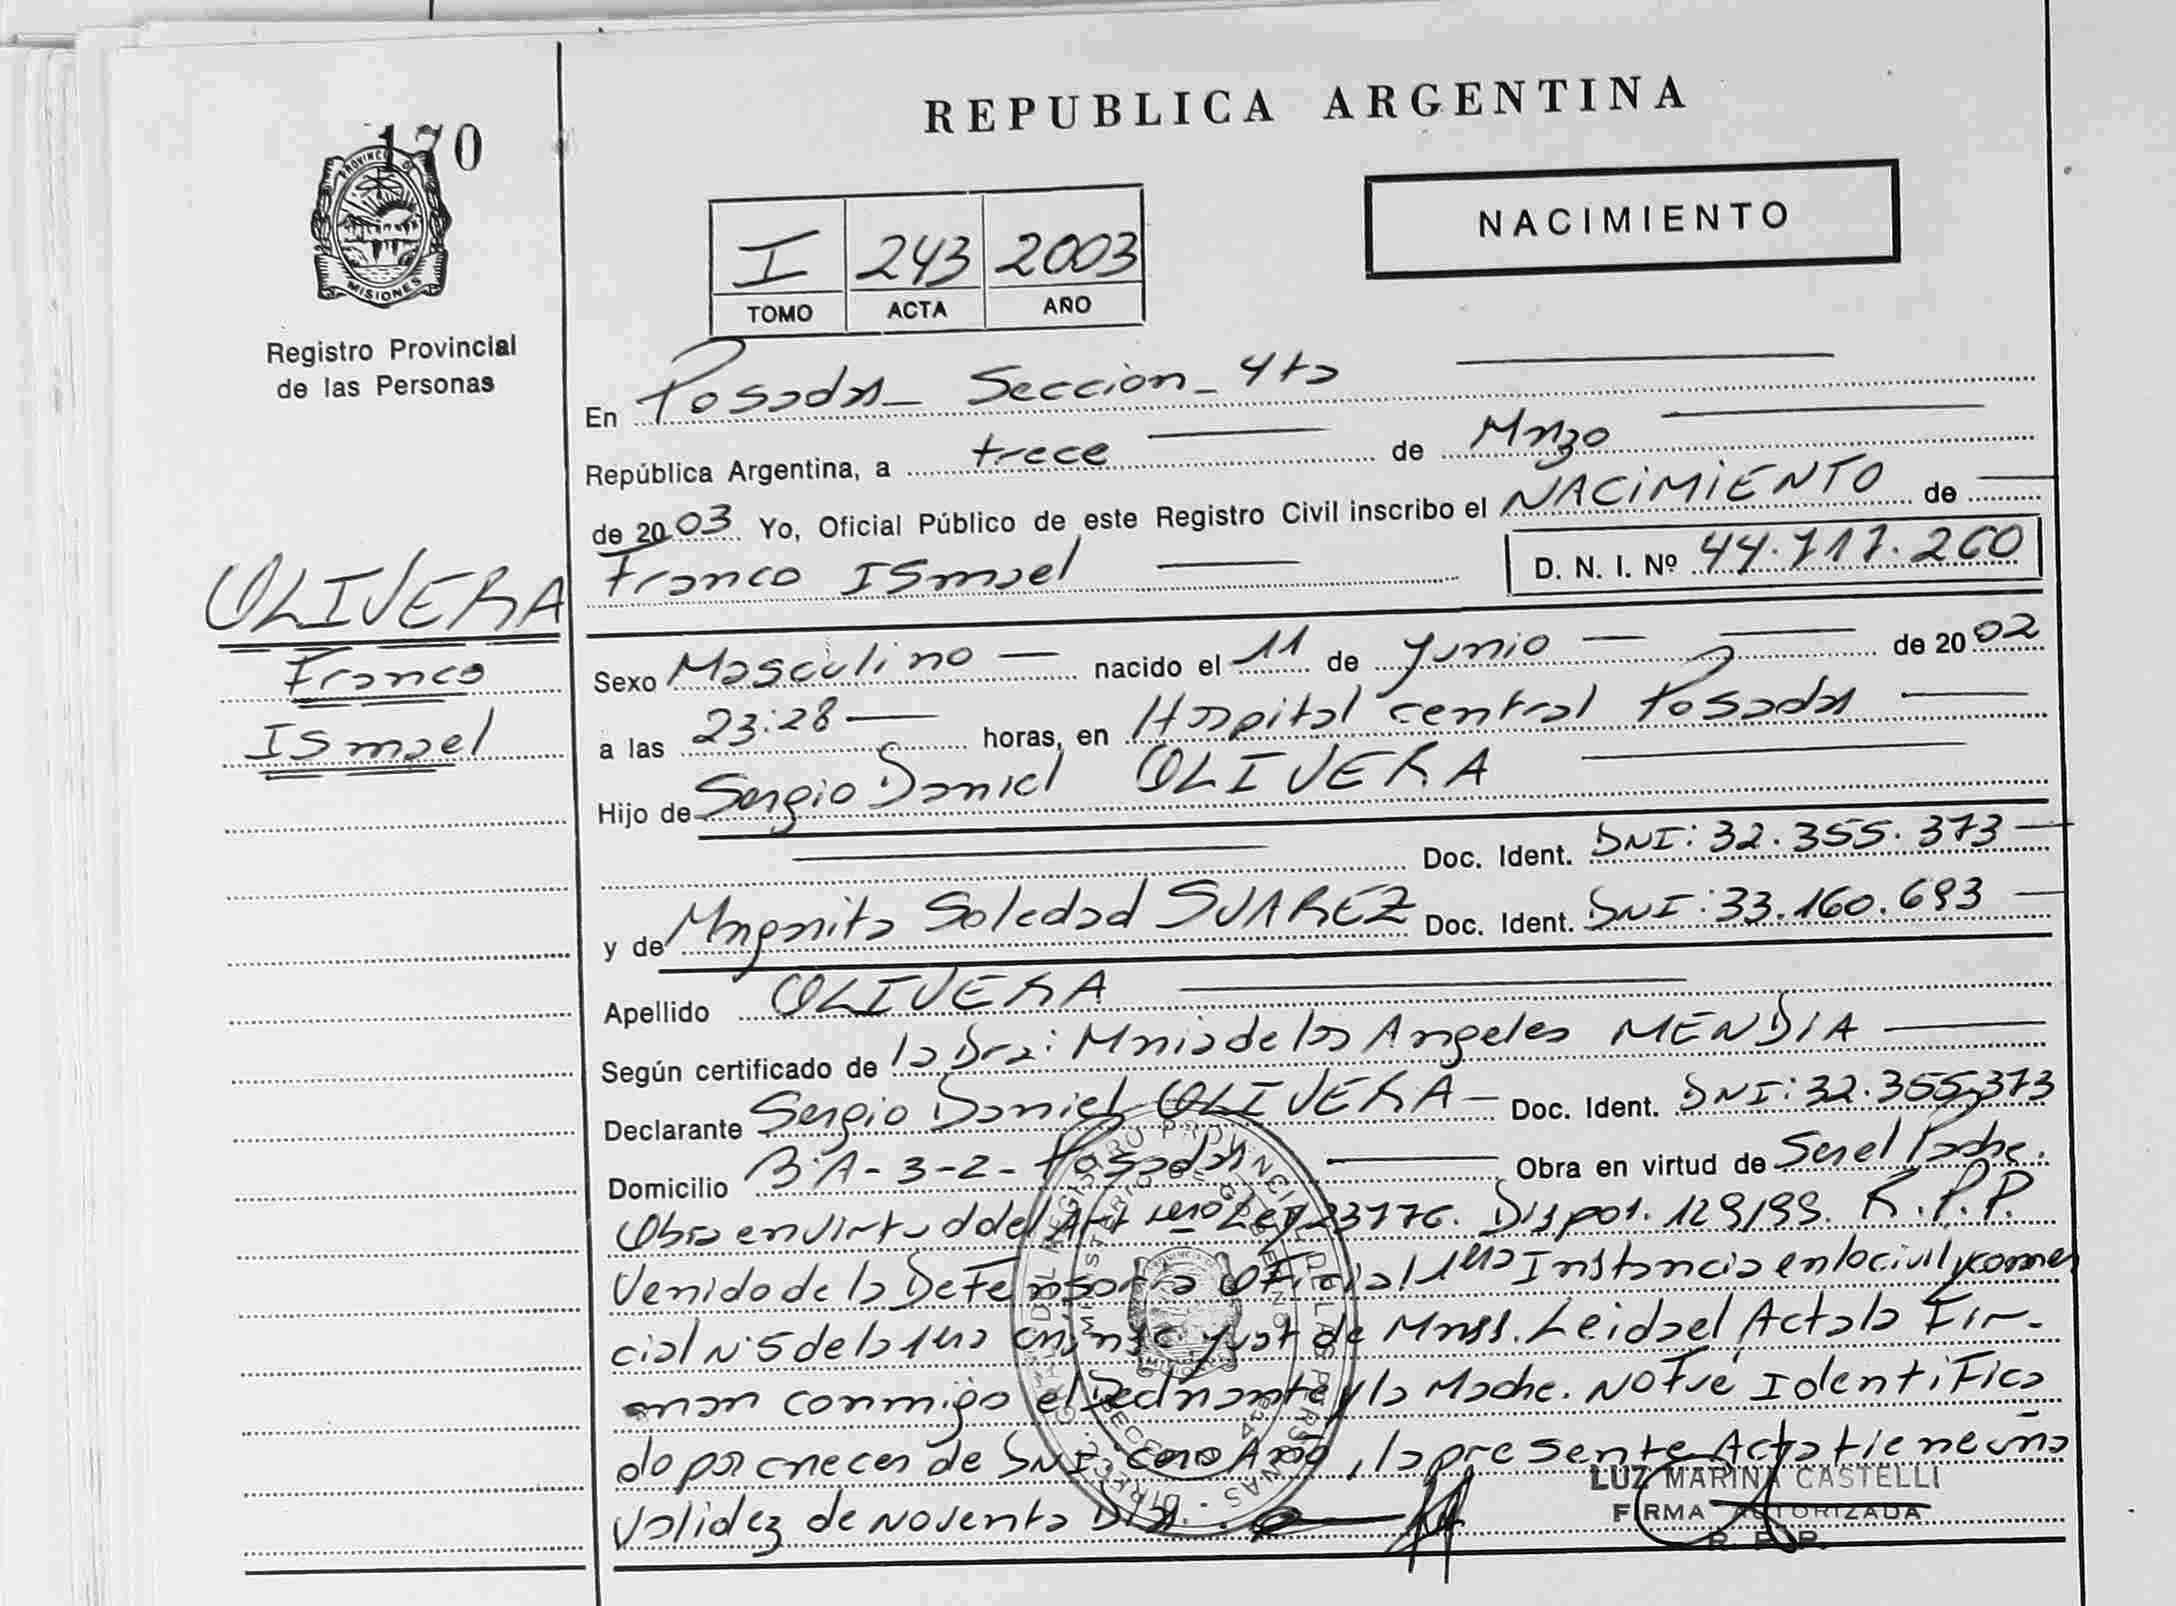 170
PROVINCIA DE
MISIONES
Registro Provincial
de las Personas
OLIVERA
Franco
Ismael
REPUBLICA ARGENTINA
NACIMIENTO
I 243 2003
TOMO ACTA AÑO
En Posadas - Sección - 4ta
República Argentina, a trece de Marzo
de 2003 Yo, Oficial Público de este Registro Civil inscribo el NACIMIENTO de
Franco Ismael D. N. I. Nº 44.717.260
Sexo Masculino nacido el 11 de Junio de 2002
a las 23:28 horas, en Hospital central Posadas
Hijo de Sergio Daniel OLIVERA
Doc. Ident. DNI: 32.355.373
y de Margarita Soledad SUAREZ Doc. Ident. DNI: 33.160.693
Apellido OLIVERA
Según certificado de la Dra: Maria de los Angeles MENDIA
Declarante Sergio Daniel OLIVERA Doc. Ident. DNI: 32.355.373
Domicilio Posadas Obra en virtud de Ser el Padre.
Obra en virtud del Art 1ero Ley 23776. Dispos. 129/99. R.P.P.
Venido de la Defensoria Oficial 1era Instancia en lo civil y comer
cial N°5 de la 1era de Mnes. Leida el Acta la Fir-
man conmigo el Declarante y la Madre. NO Fué Identifica
do por carecer de DNI Cero Año, la presente Acta tiene una
validez de noventa Dias.
LUZ MARINA CASTELLI
FIRMA AUTORIZADA
R. P. P.